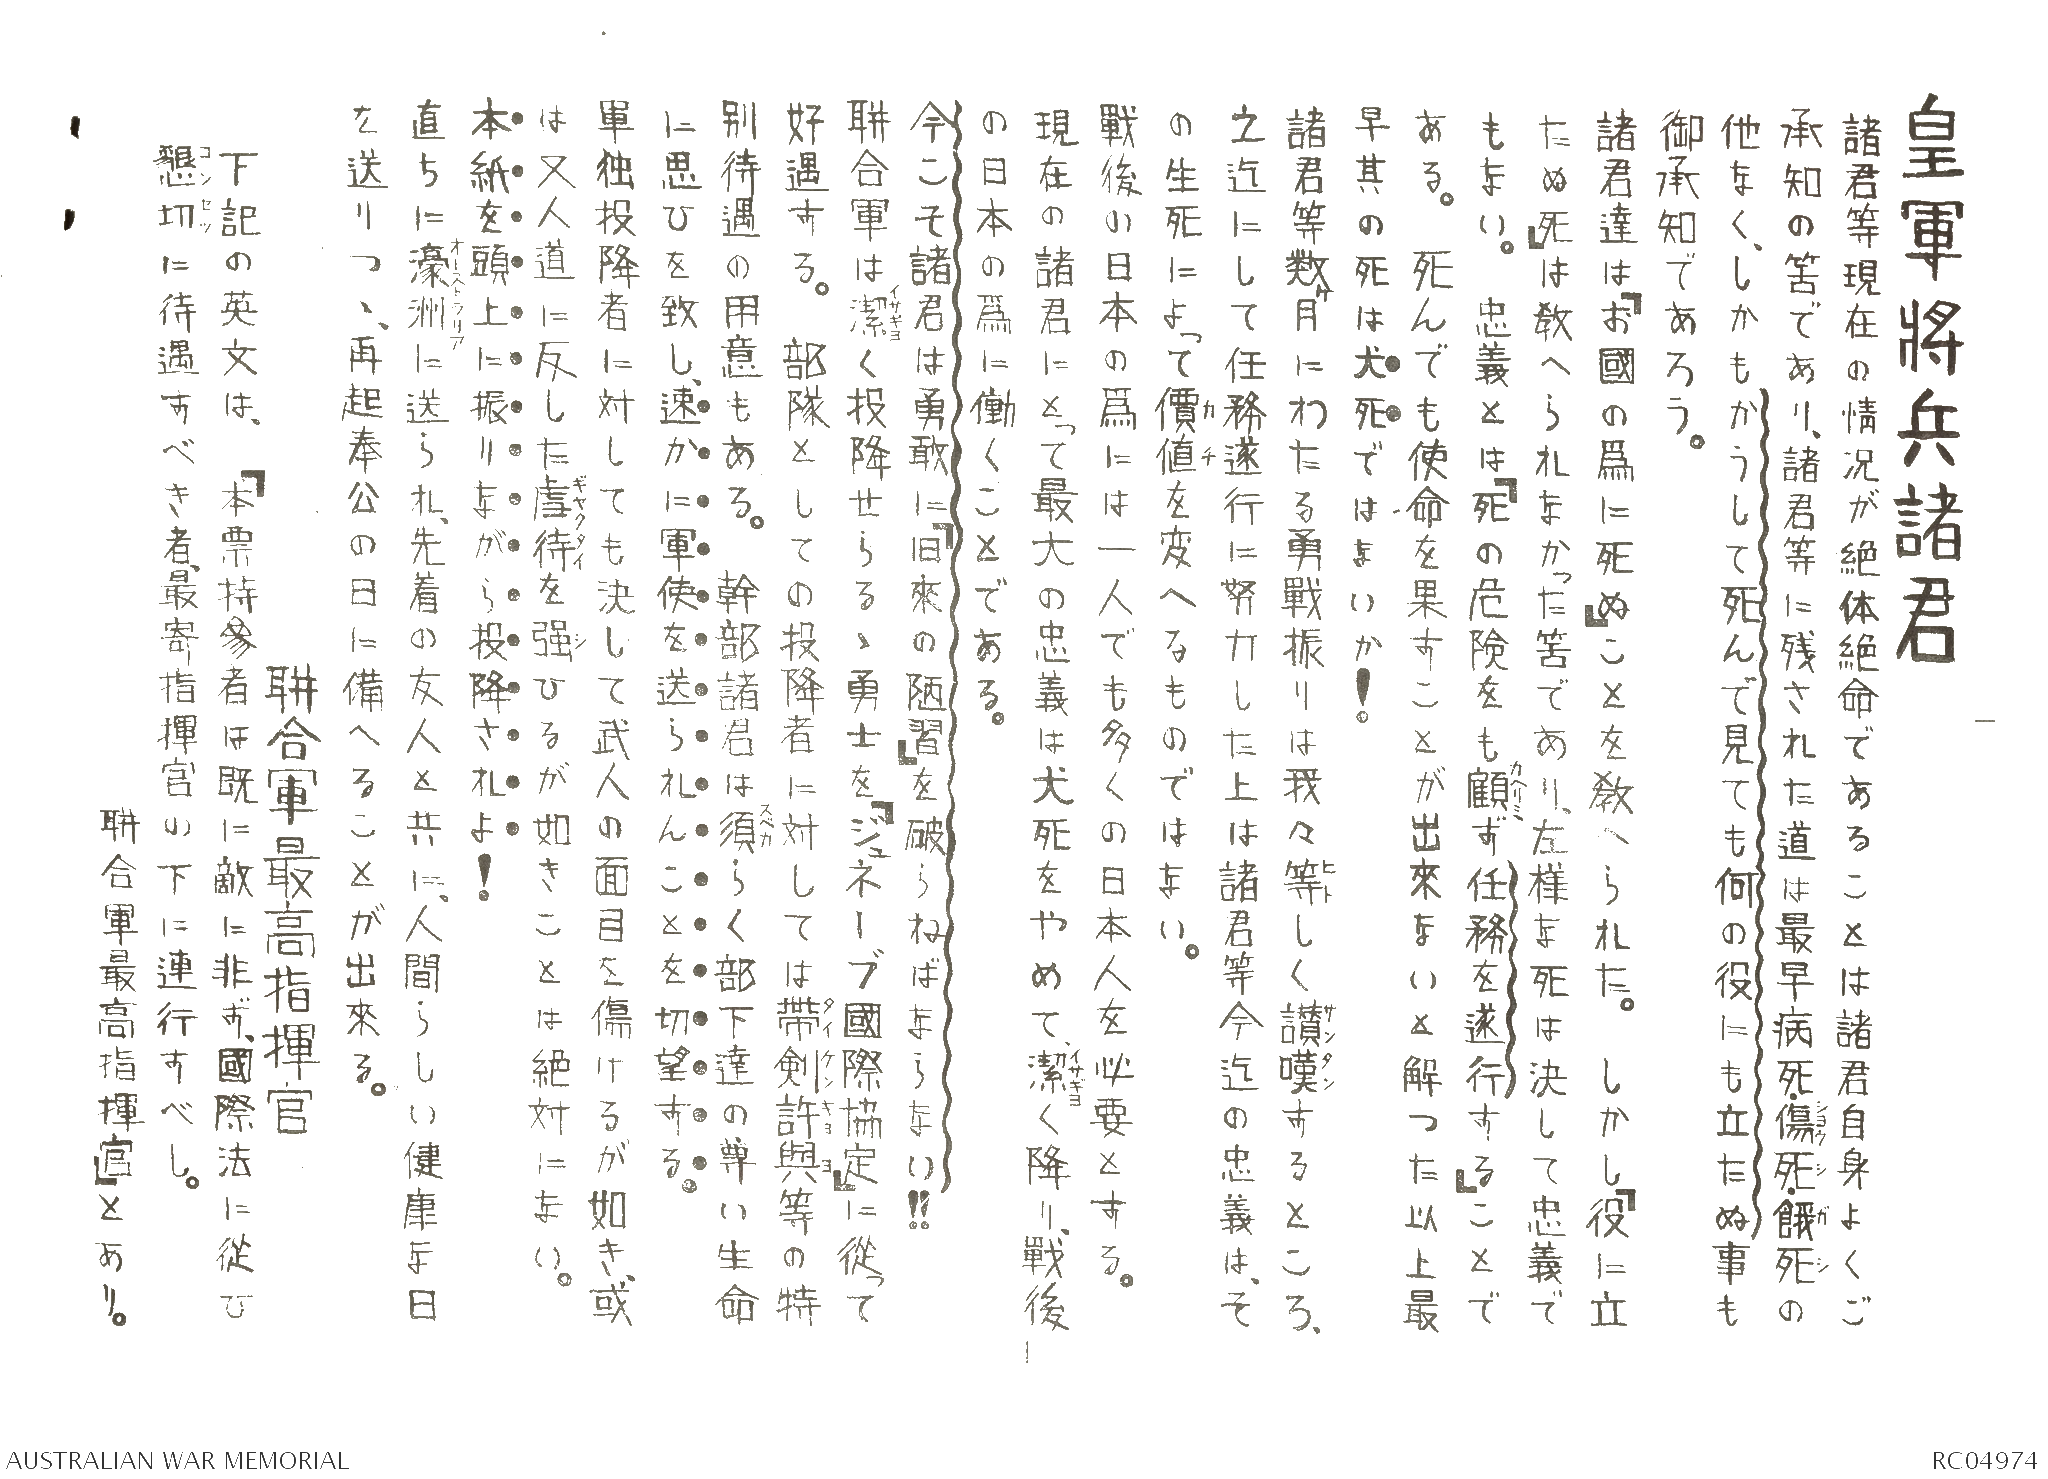 皇軍將兵諸君
諸君等現在の情況が絶体絶命であることは諸君自身よくご
承知の筈であり、諸君等に残された道は最早病死・傷死・餓死の
他なく、しかもかうして死んで見ても何の役にも立たぬ事も
御承知であろう。
諸君達は『お國の爲に死ぬ』ことを教へられた。しかし『役に立
たぬ死』は教へられなかった筈であり、左樣な死は決して忠義で
もない。忠義とは『死の危険をも顧ず任務を遂行する』ことで
ある。死んでも使命を果すことが出來ないと解つた以上最
早其の死は犬死ではないか!
諸君等数ヶ月にわたる勇戰振りは我々等しく讃嘆するところ、
之迄にして任務遂行に努力した上は諸君等今迄の忠義は、そ
の生死によって價値を変へるものではない。
戰後の日本の爲には一人でも多くの日本人を必要とする。
現在の諸君にとって最大の忠義は犬死をやめて、潔く降り、戰後
の日本の爲に働くことである。
今こそ諸君は勇敢に『旧來の陋習』を破らねばならない!!
聨合軍は潔く投降せらるゝ勇士を『ジュネーブ國際協定』に従って
好遇する。部隊としての投降者に対しては帶剣許與等の特
別待遇の用意もある。幹部諸君は須らく部下達の尊い生命
に思ひを致し、速かに軍使を送られんことを切望する。
單独投降者に対しても決して武人の面目を傷けるが如き、或
は又人道に反した虐待を强ひるが如きことは絶対にない。
本紙を頭上に振りながら投降されよ!
直ちに濠洲に送られ、先着の友人と共に、人間らしい健康な日
を送りつゝ、再起奉公の日に備へることが出來る。
聨合軍最高指揮官
下記の英文は、『本票持参者は既に敵に非ず、國際法に従ひ
懇切に待遇すべき者、最寄指揮官の下に連行すべし。
聨合軍最高指揮官』とあり。
AUSTRALIAN WAR MEMORIAL
RC04974